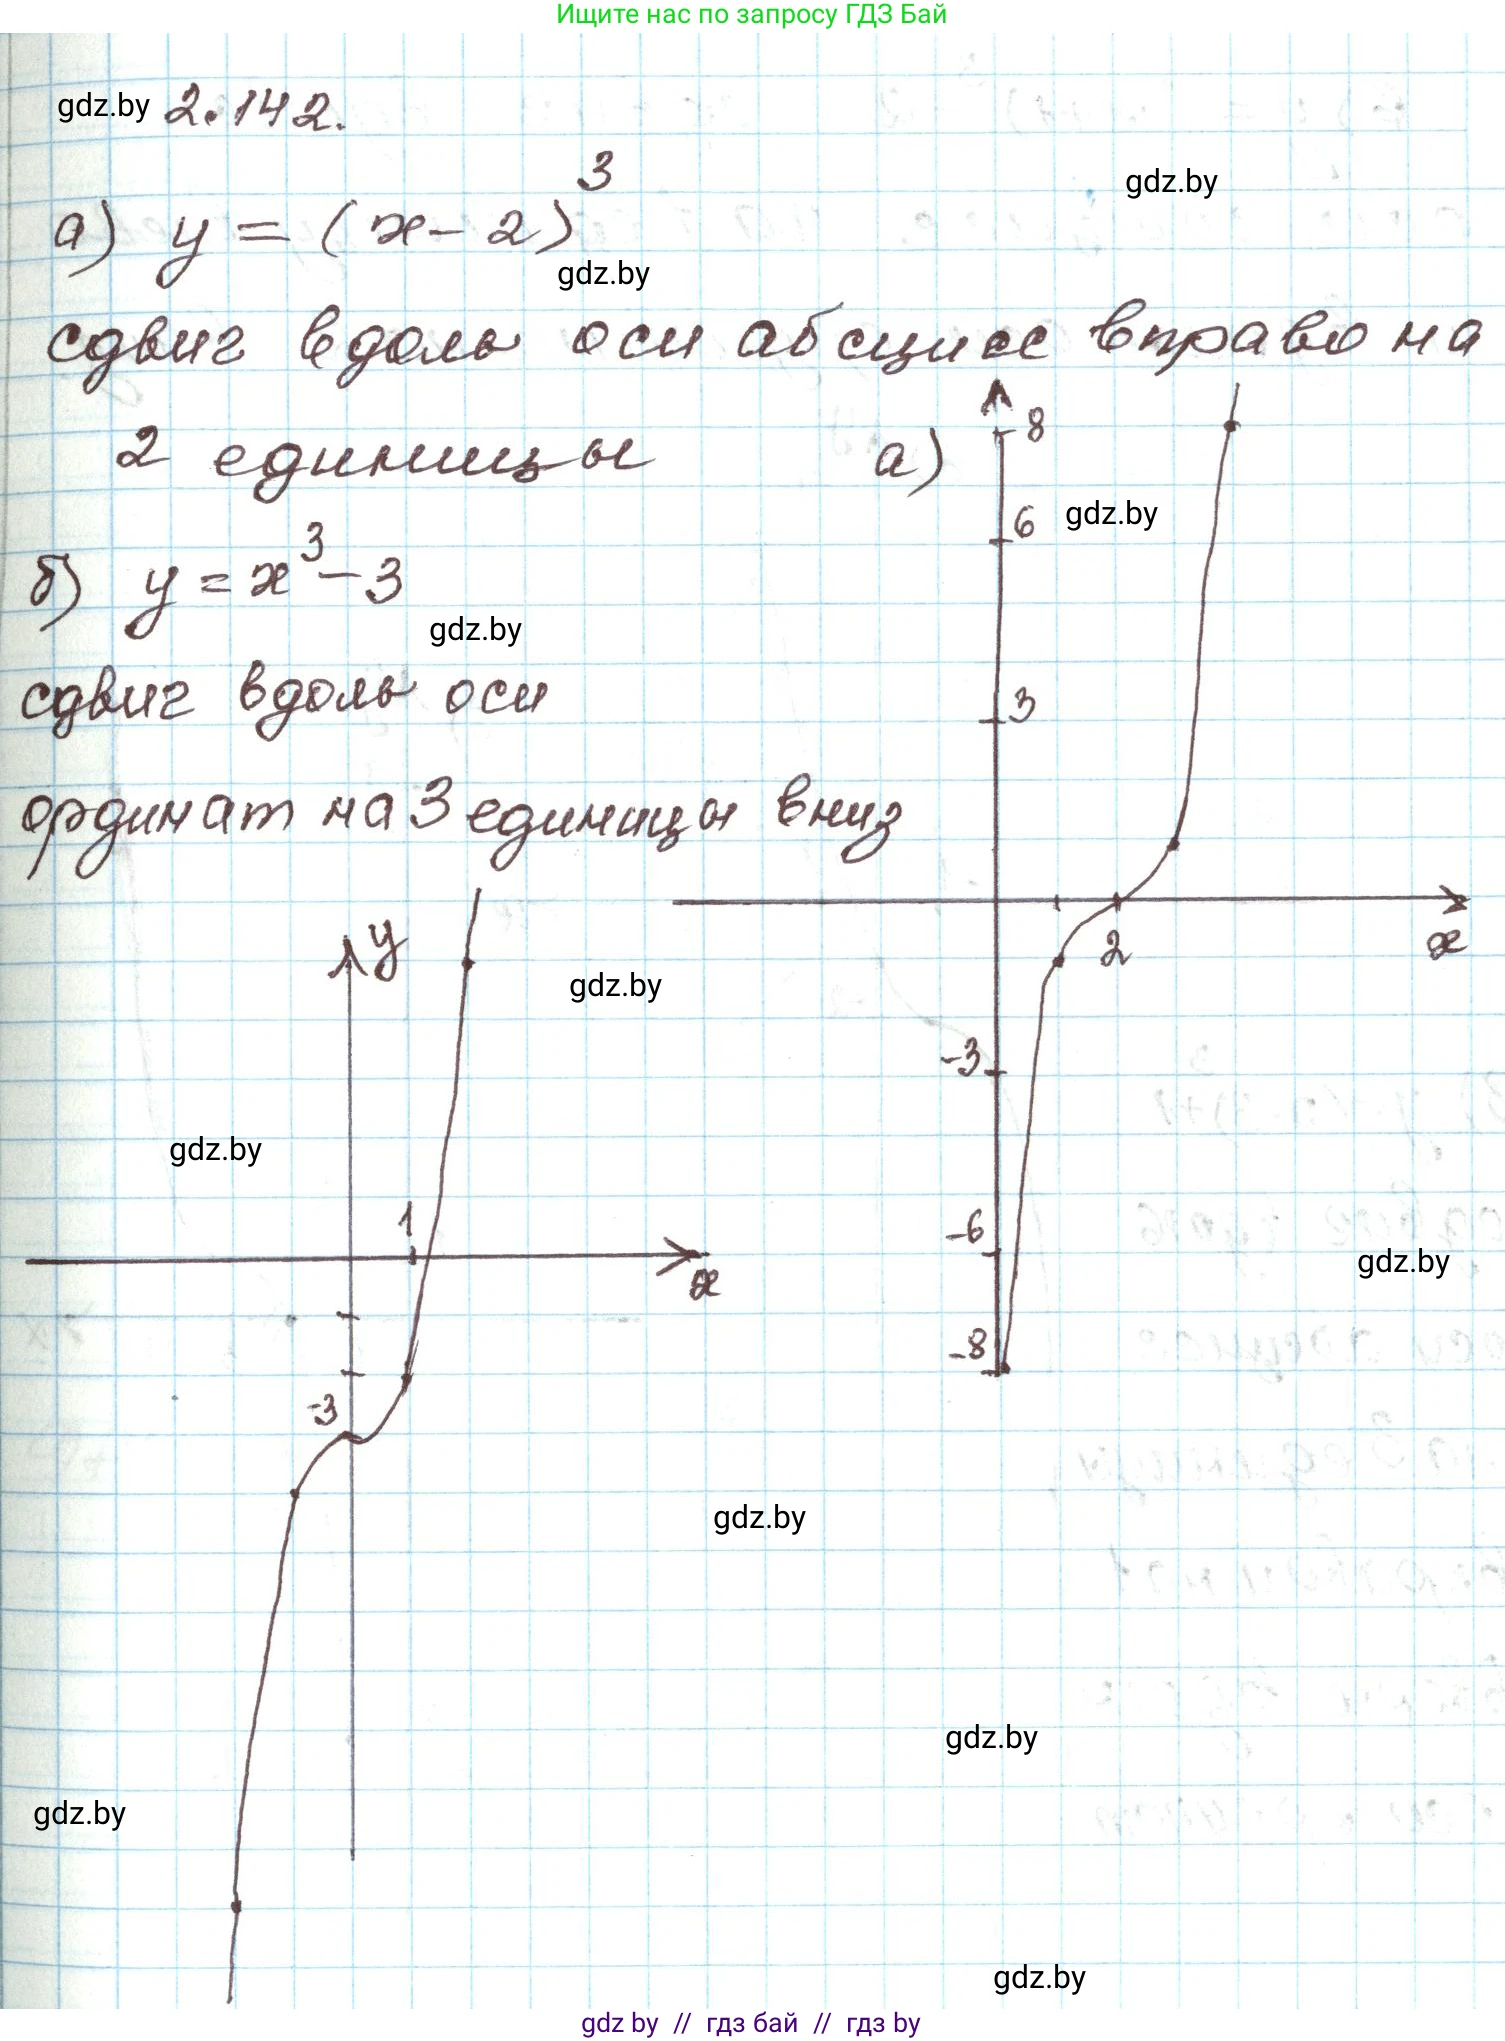 Ищите нас по запросу ГДЗ Бай
gdz.by 2.142.
gdz.by
а) y = (x - 2)³
gdz.by
сдвиг вдоль оси абсцисс вправо на
2 единицы
а)
8
6
gdz.by
б) y = x³ - 3
gdz.by
сдвиг вдоль оси
3
ординат на 3 единицы вниз
y
2
x
gdz.by
-3
gdz.by
1
-6
x
gdz.by
-8
-3
gdz.by
gdz.by
gdz.by
gdz.by
gdz.by // гдз бай // гдз by